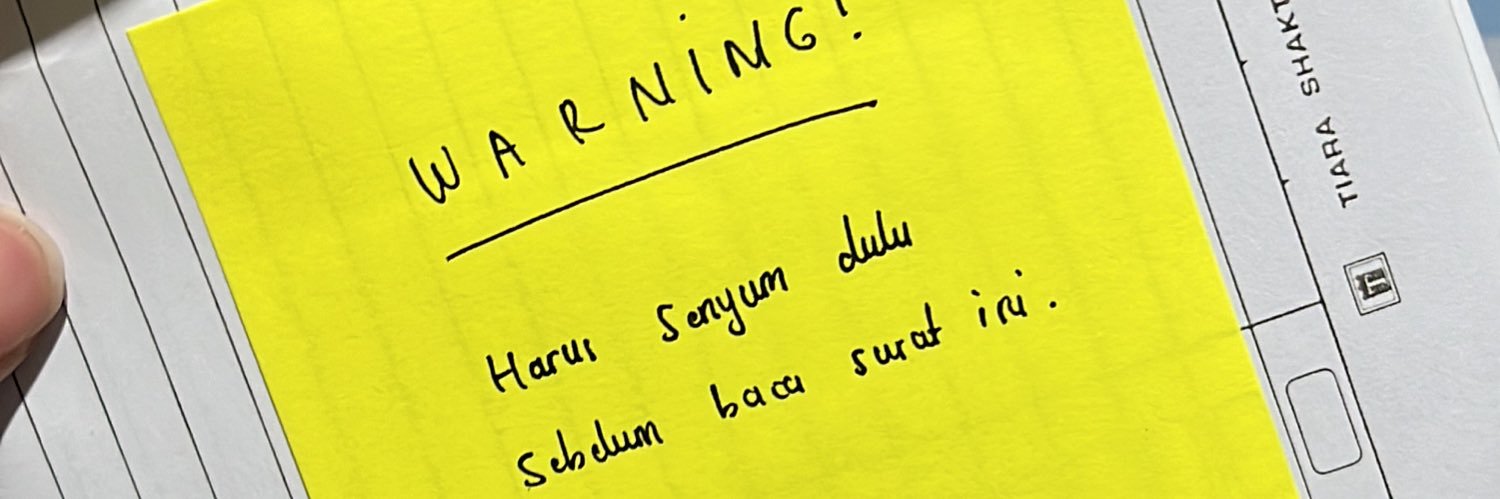 WARNING!
Harus senyum dulu
sebelum baca surat ini.
TIARA SHAKT
T